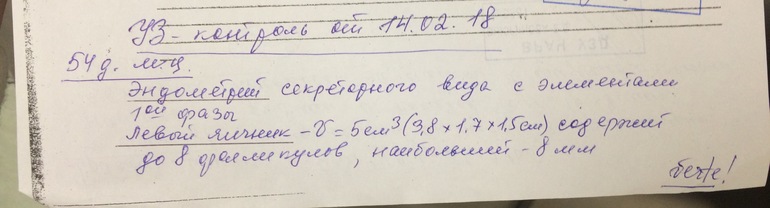 УЗ-контроль от 14.02.18
54 д. мц.
Эндометрий секреторного вида с элементами
1ой фазы
Левый яичник - V = 5см³ (3,8 х 1,7 х 1,5см) содержит
до 8 фолликулов, наибольший - 8 мм